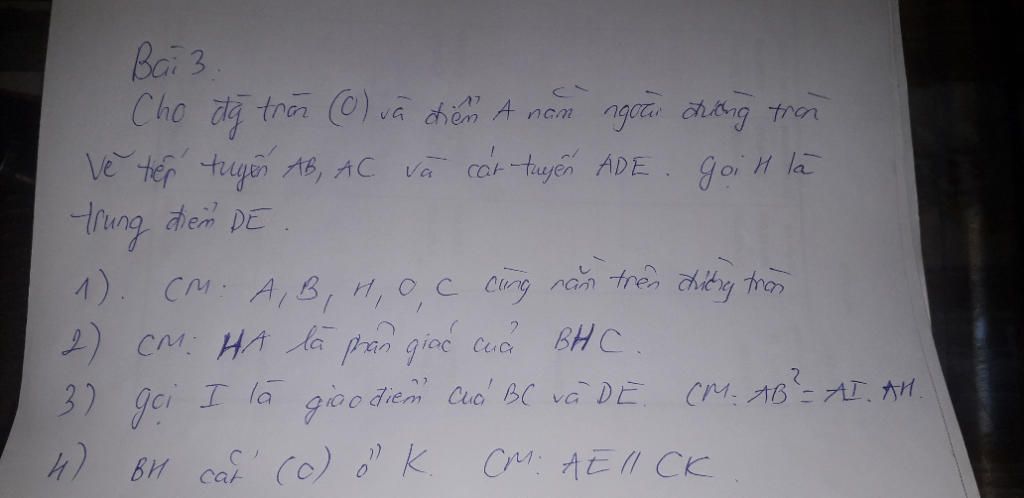 Bài 3.
Cho đg tròn (O) và điểm A nằm ngoài đường tròn
Vẽ tiếp tuyến AB, AC và cát tuyến ADE. gọi H là
trung điểm DE.
1). CM: A, B, H, O, C cùng nằm trên đường tròn
2) CM: HA là phân giác của BHC.
3) gọi I là giao điểm của BC và DE. CM: AB² = AI. AH.
4) BH cắt (O) ở K. CM: AE // CK.